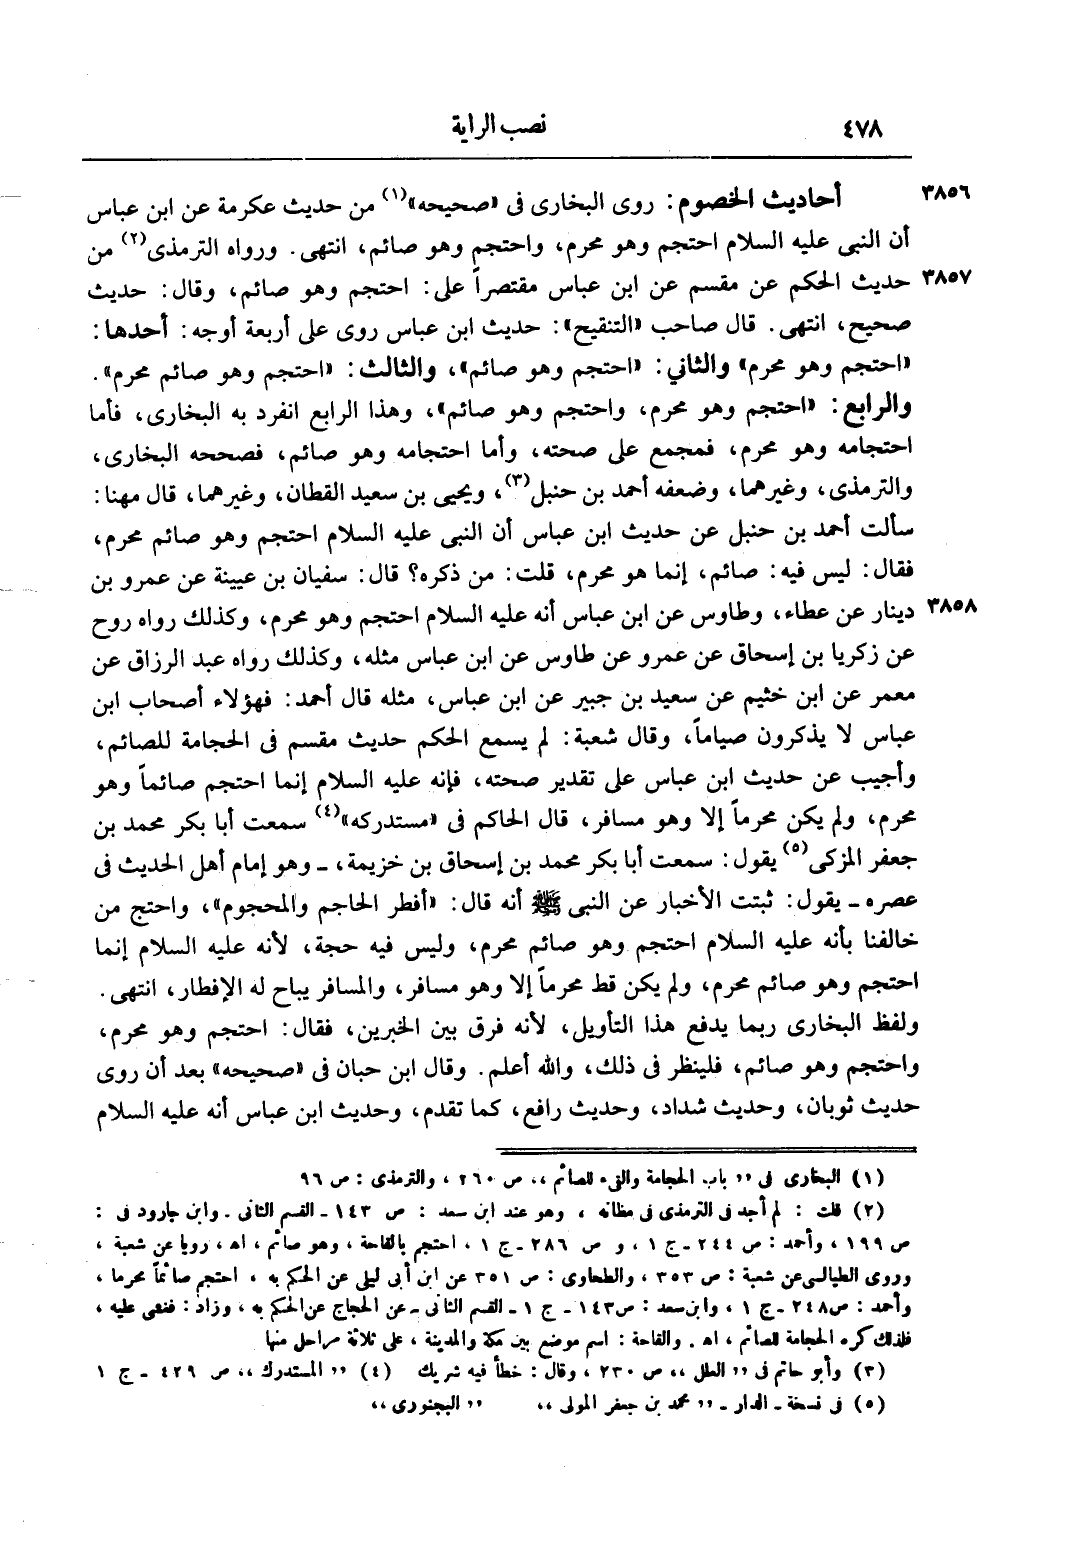 ٤٧٨ نصب الراية
٣٨٥٦ أحاديث الخصوم: روى البخارى فى «صحيحه»(١) من حديث عكرمة عن ابن عباس
أن النبى عليه السلام احتجم وهو محرم، واحتجم وهو صائم، انتهى. ورواه الترمذى(٢) من
٣٨٥٧ حديث الحكم عن مقسم عن ابن عباس مقتصراً على: احتجم وهو صائم، وقال: حديث
صحيح، انتهى. قال صاحب «التنقيح»: حديث ابن عباس روى على أربعة أوجه: أحدها:
«احتجم وهو محرم» والثاني: «احتجم وهو صائم»، والثالث: «احتجم وهو صائم محرم».
والرابع: «احتجم وهو محرم، واحتجم وهو صائم»، وهذا الرابع انفرد به البخارى، فأما
احتجامه وهو محرم، فمجمع على صحته، وأما احتجامه وهو صائم، فصححه البخارى،
والترمذى، وغيرهما، وضعفه أحمد بن حنبل(٣)، ويحيى بن سعيد القطان، وغيرهما، قال مهنا:
سألت أحمد بن حنبل عن حديث ابن عباس أن النبى عليه السلام احتجم وهو صائم محرم،
فقال: ليس فيه: صائم، إنما هو محرم، قلت: من ذكره؟ قال: سفيان بن عيينة عن عمرو بن
٣٨٥٨ دينار عن عطاء، وطاوس عن ابن عباس أنه عليه السلام احتجم وهو محرم، وكذلك رواه روح
عن زكريا بن إسحاق عن عمرو عن طاوس عن ابن عباس مثله، وكذلك رواه عبد الرزاق عن
معمر عن ابن خثيم عن سعيد بن جبير عن ابن عباس، مثله قال أحمد: فهؤلاء أصحاب ابن
عباس لا يذكرون صياماً، وقال شعبة: لم يسمع الحكم حديث مقسم فى الحجامة للصائم،
وأجيب عن حديث ابن عباس على تقدير صحته، فإنه عليه السلام إنما احتجم صائماً وهو
محرم، ولم يكن محرماً إلا وهو مسافر، قال الحاكم فى «مستدركه»(٤) سمعت أبا بكر محمد بن
جعفر المزكى(٥) يقول: سمعت أبا بكر محمد بن إسحاق بن خزيمة، ـ وهو إمام أهل الحديث فى
عصره ـ يقول: ثبتت الأخبار عن النبى ﷺ أنه قال: «أفطر الحاجم والمحجوم»، واحتج من
خالفنا بأنه عليه السلام احتجم وهو صائم محرم، وليس فيه حجة، لأنه عليه السلام إنما
احتجم وهو صائم محرم، ولم يكن قط محرماً إلا وهو مسافر، والمسافر يباح له الإفطار، انتهى.
ولفظ البخارى ربما يدفع هذا التأويل، لأنه فرق بين الخبرين، فقال: احتجم وهو محرم،
واحتجم وهو صائم، فلينظر فى ذلك، والله أعلم. وقال ابن حبان فى «صحيحه» بعد أن روى
حديث ثوبان، وحديث شداد، وحديث رافع، كما تقدم، وحديث ابن عباس أنه عليه السلام
(١) البخارى فى ,, باب الحجامة والقىء للصائم ,, ص ٢٦٠، والترمذى: ص ٩٦
(٢) قلت: لم أجد فى الترمذى فى مظانه، وهو عند ابن سعد: ص ١٤٣ ـ القسم الثانى ـ وابن جارود فى:
ص ١٩٩، وأحمد: ص ٢٤٤ ـ ج ١، و ص ٢٨٦ ـ ج ١، احتجم بالقاحة، وهو صائم، اه، رويا عن شعبة،
وروى الطيالسى عن شعبة: ص ٣٥٣، والطحاوى: ص ٣٥١ عن ابن أبى ليلى عن الحكم به، احتجم صائماً محرما،
وأحمد: ص ٢٤٨ ـ ج ١، وابن سعد: ص ١٤٣ ـ ج ١ ـ القسم الثانى ـ عن الحجاج عن الحكم به، وزاد: فغشى عليه،
فلذلك كره الحجامة للصائم، اه. والقاحة: اسم موضع بين مكة والمدينة، على ثلاثة مراحل منها
(٣) وأبو حاتم فى ,, العلل ,, ص ٢٣٠، وقال: خطأ فيه شريك (٤) ,, المستدرك ,, ص ٤٢٩ ـ ج ١
(٥) فى نسخة ـ الدار ـ ,, محمد بن جعفر المولى ,, ,, البجنورى ,,